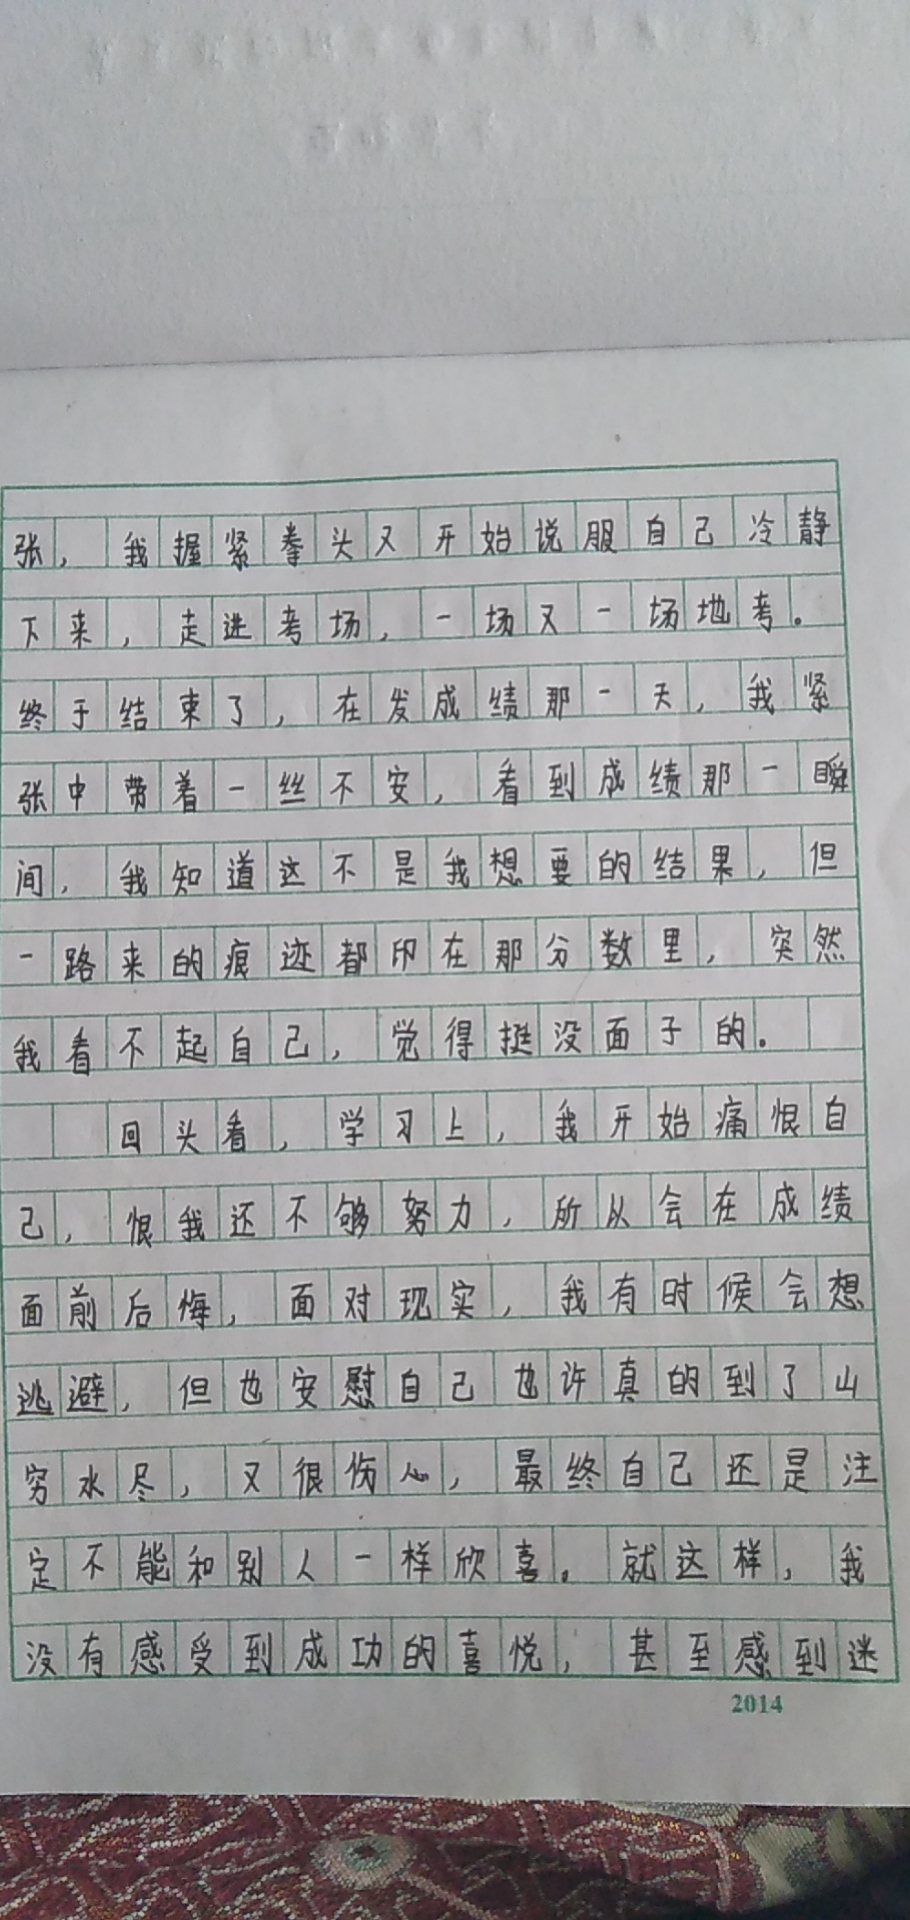 张，我握紧拳头又开始说服自己冷静
下来，走进考场，一场又一场地考。
终于结束了，在发成绩那一天，我紧
张中带着一丝不安，看到成绩那一瞬
间，我知道这不是我想要的结果，但
一路来的痕迹都印在那分数里，突然
我看不起自己，觉得挺没面子的。
回头看，学习上，我开始痛恨自
己，恨我还不够努力，所以会在成绩
面前后悔，面对现实，我有时候会想
逃避，但也安慰自己也许真的到了山
穷水尽，又很伤心，最终自己还是注
定不能和别人一样欣喜。就这样，我
没有感受到成功的喜悦，甚至感到迷
2014